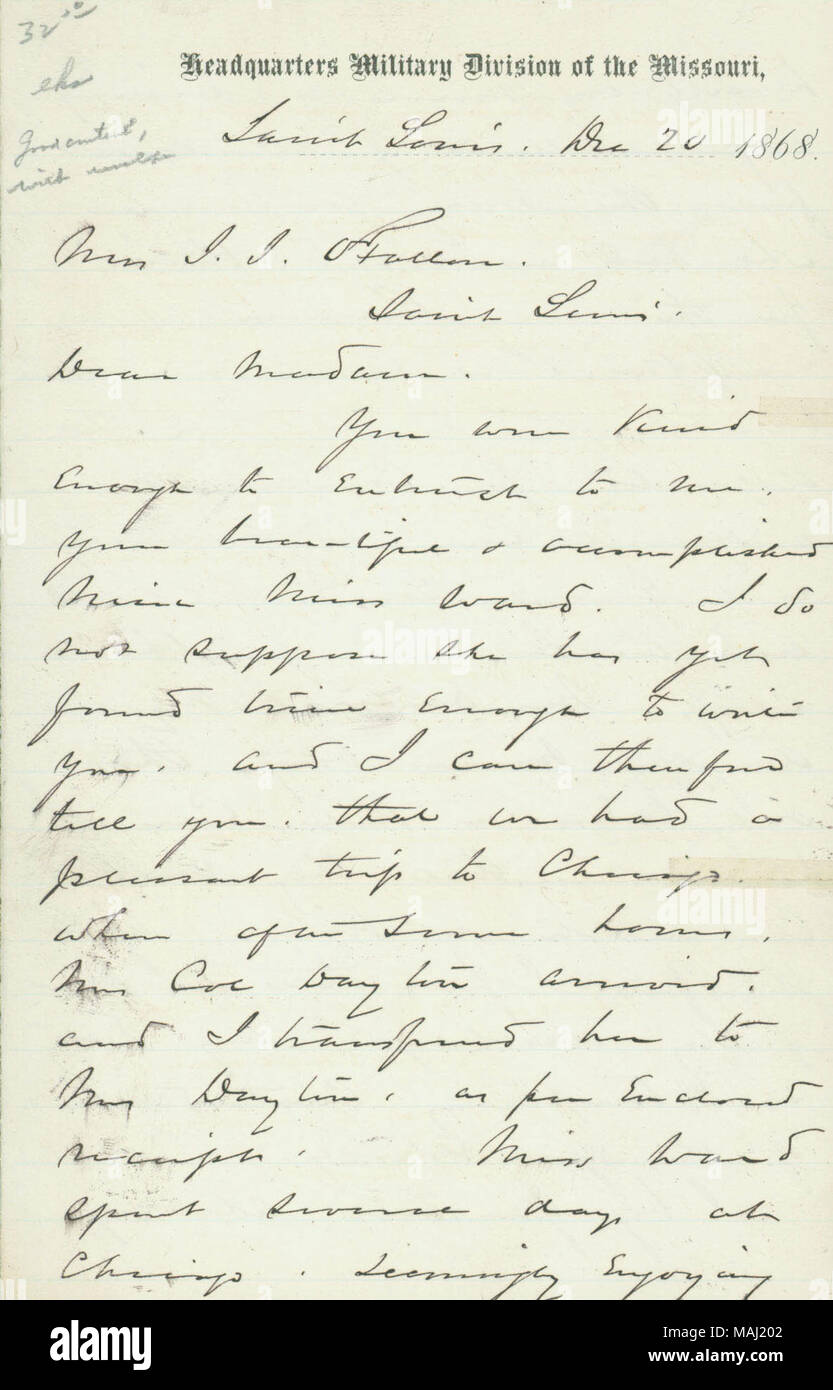 32 50
eha
Good content,
with
Headquarters Military Division of the Missouri,
Saint Louis. Dec 20 1868.
Mrs J. J. O'Fallon.
Saint Louis.
Dear Madam.
You were Kind
Enough to Entrust to me,
your beautiful & accomplished
Niece Miss Ward. I do
not suppose she has yet
found time Enough to write
you. and I can therefore
tell you. that we had a
pleasant trip to Chicago.
when after some hours,
Mrs Col Dayton arrived.
and I transferred her to
Mrs Dayton, as per Enclosed
receipt. Miss Ward
spent several days at
Chicago. Seemingly Enjoying
alamy
Image ID: MAJ202
www.alamy.com